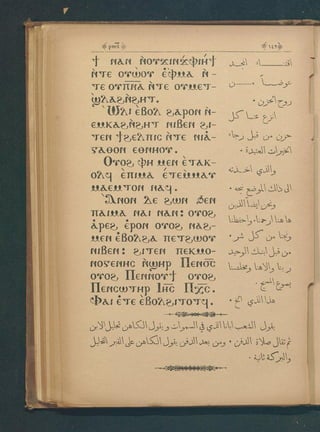 ϯ ⲛⲁⲛ
ⲛ̀ⲧⲉ ⲟⲩⲱ̀ⲟⲩ ⲉ̀ⲫⲙⲁ ⲛ̀-
ⲧⲉ ⲟⲩⲡⲛ̅ⲁ̅ ⲛ̀ⲧⲉ ⲟⲩⲙⲉⲧ-
ⲱ̀ⲗⲁϩⲛ̀ϩⲏⲧ.
Ⲱ̀ⲗⲓ ⲉ̀ⲃⲟⲗ ϩⲁⲣⲟⲛ ⲛ̀-
ⲉⲙⲕⲁϩⲛ̀ϩⲏⲧ ⲛⲓⲃⲉⲛ ϩⲓ-
ⲧⲉⲛ ϯϩⲉⲗⲡⲓⲥ ⲛ̀ⲧⲉ ⲛⲓⲁ̀-
ⲅⲁⲑⲟⲛ ⲉⲑⲛⲏⲟⲩ.
Ⲟⲩⲟϩ ⲫⲏ ⲙⲉⲛ ⲉ̀ⲧⲁⲕ-
ⲟⲗϥ ⲉ̀ⲡⲓⲙⲁ ⲉ̀ⲧⲉⲙⲙⲁⲩ
ⲙⲁⲉⲙⲧⲟⲛ ⲛⲁϥ.
Ⲁ̀ⲛⲟⲛ ⲇⲉ ϩⲱⲛ ϧⲉⲛ
ⲡⲁⲓⲙⲁ ⲛⲁⲓ ⲛⲁⲛ: ⲟⲩⲟϩ
ⲁ̀ⲣⲉϩ ⲉ̀ⲣⲟⲛ ⲟⲩⲟϩ ⲛⲁϩ-
ⲙⲉⲛ ⲉ̀ⲃⲟⲗϩⲁ ⲡⲉⲧϩⲱⲟⲩ
ⲛⲓⲃⲉⲛ: ϩⲓⲧⲉⲛ ⲡⲉⲕⲙⲟ-
ⲛⲟⲅⲉⲛⲏⲥ ⲛ̀ϣⲏⲣⲓ Ⲡⲉⲛϭ̅ⲥ̅
ⲟⲩⲟϩ Ⲡⲉⲛⲛⲟⲩϯ ⲟⲩⲟϩ
Ⲡⲉⲛⲥⲱⲧⲏⲣ Ⲓⲏ̅ⲥ̅ Ⲡⲭ̅ⲥ̅.
Ⲫⲁⲓ ⲉ̀ⲧⲉ ⲉ̀ⲃⲟⲗϩⲓⲧⲟⲧϥ.
عوضاً عن
روح الحزن ٠
انزع عنا كل
حزن من قبل رجاء
الخيرات العتيدة ٠
والذي اخذته
الى ذاك الموضع نيحه ٠
ونحن ايضاً الذين
ها هنا ارحمنا٠ واحفظنا
ونجنا من كل شر ٠
من قبل ابنك الوحيد
ربنا والاهنا ومخلصنا
يسوع المسيح ٠
هذا الذي الخ ٠
يقول الشعب ابانا الذي في السموات ويقول الكاهن تحليل الابن
ثم تقال صلاة الدفن ٠ ومن بعد الدفن يقول الكاهن على القبر التحليل
والبركة ثانية ٠